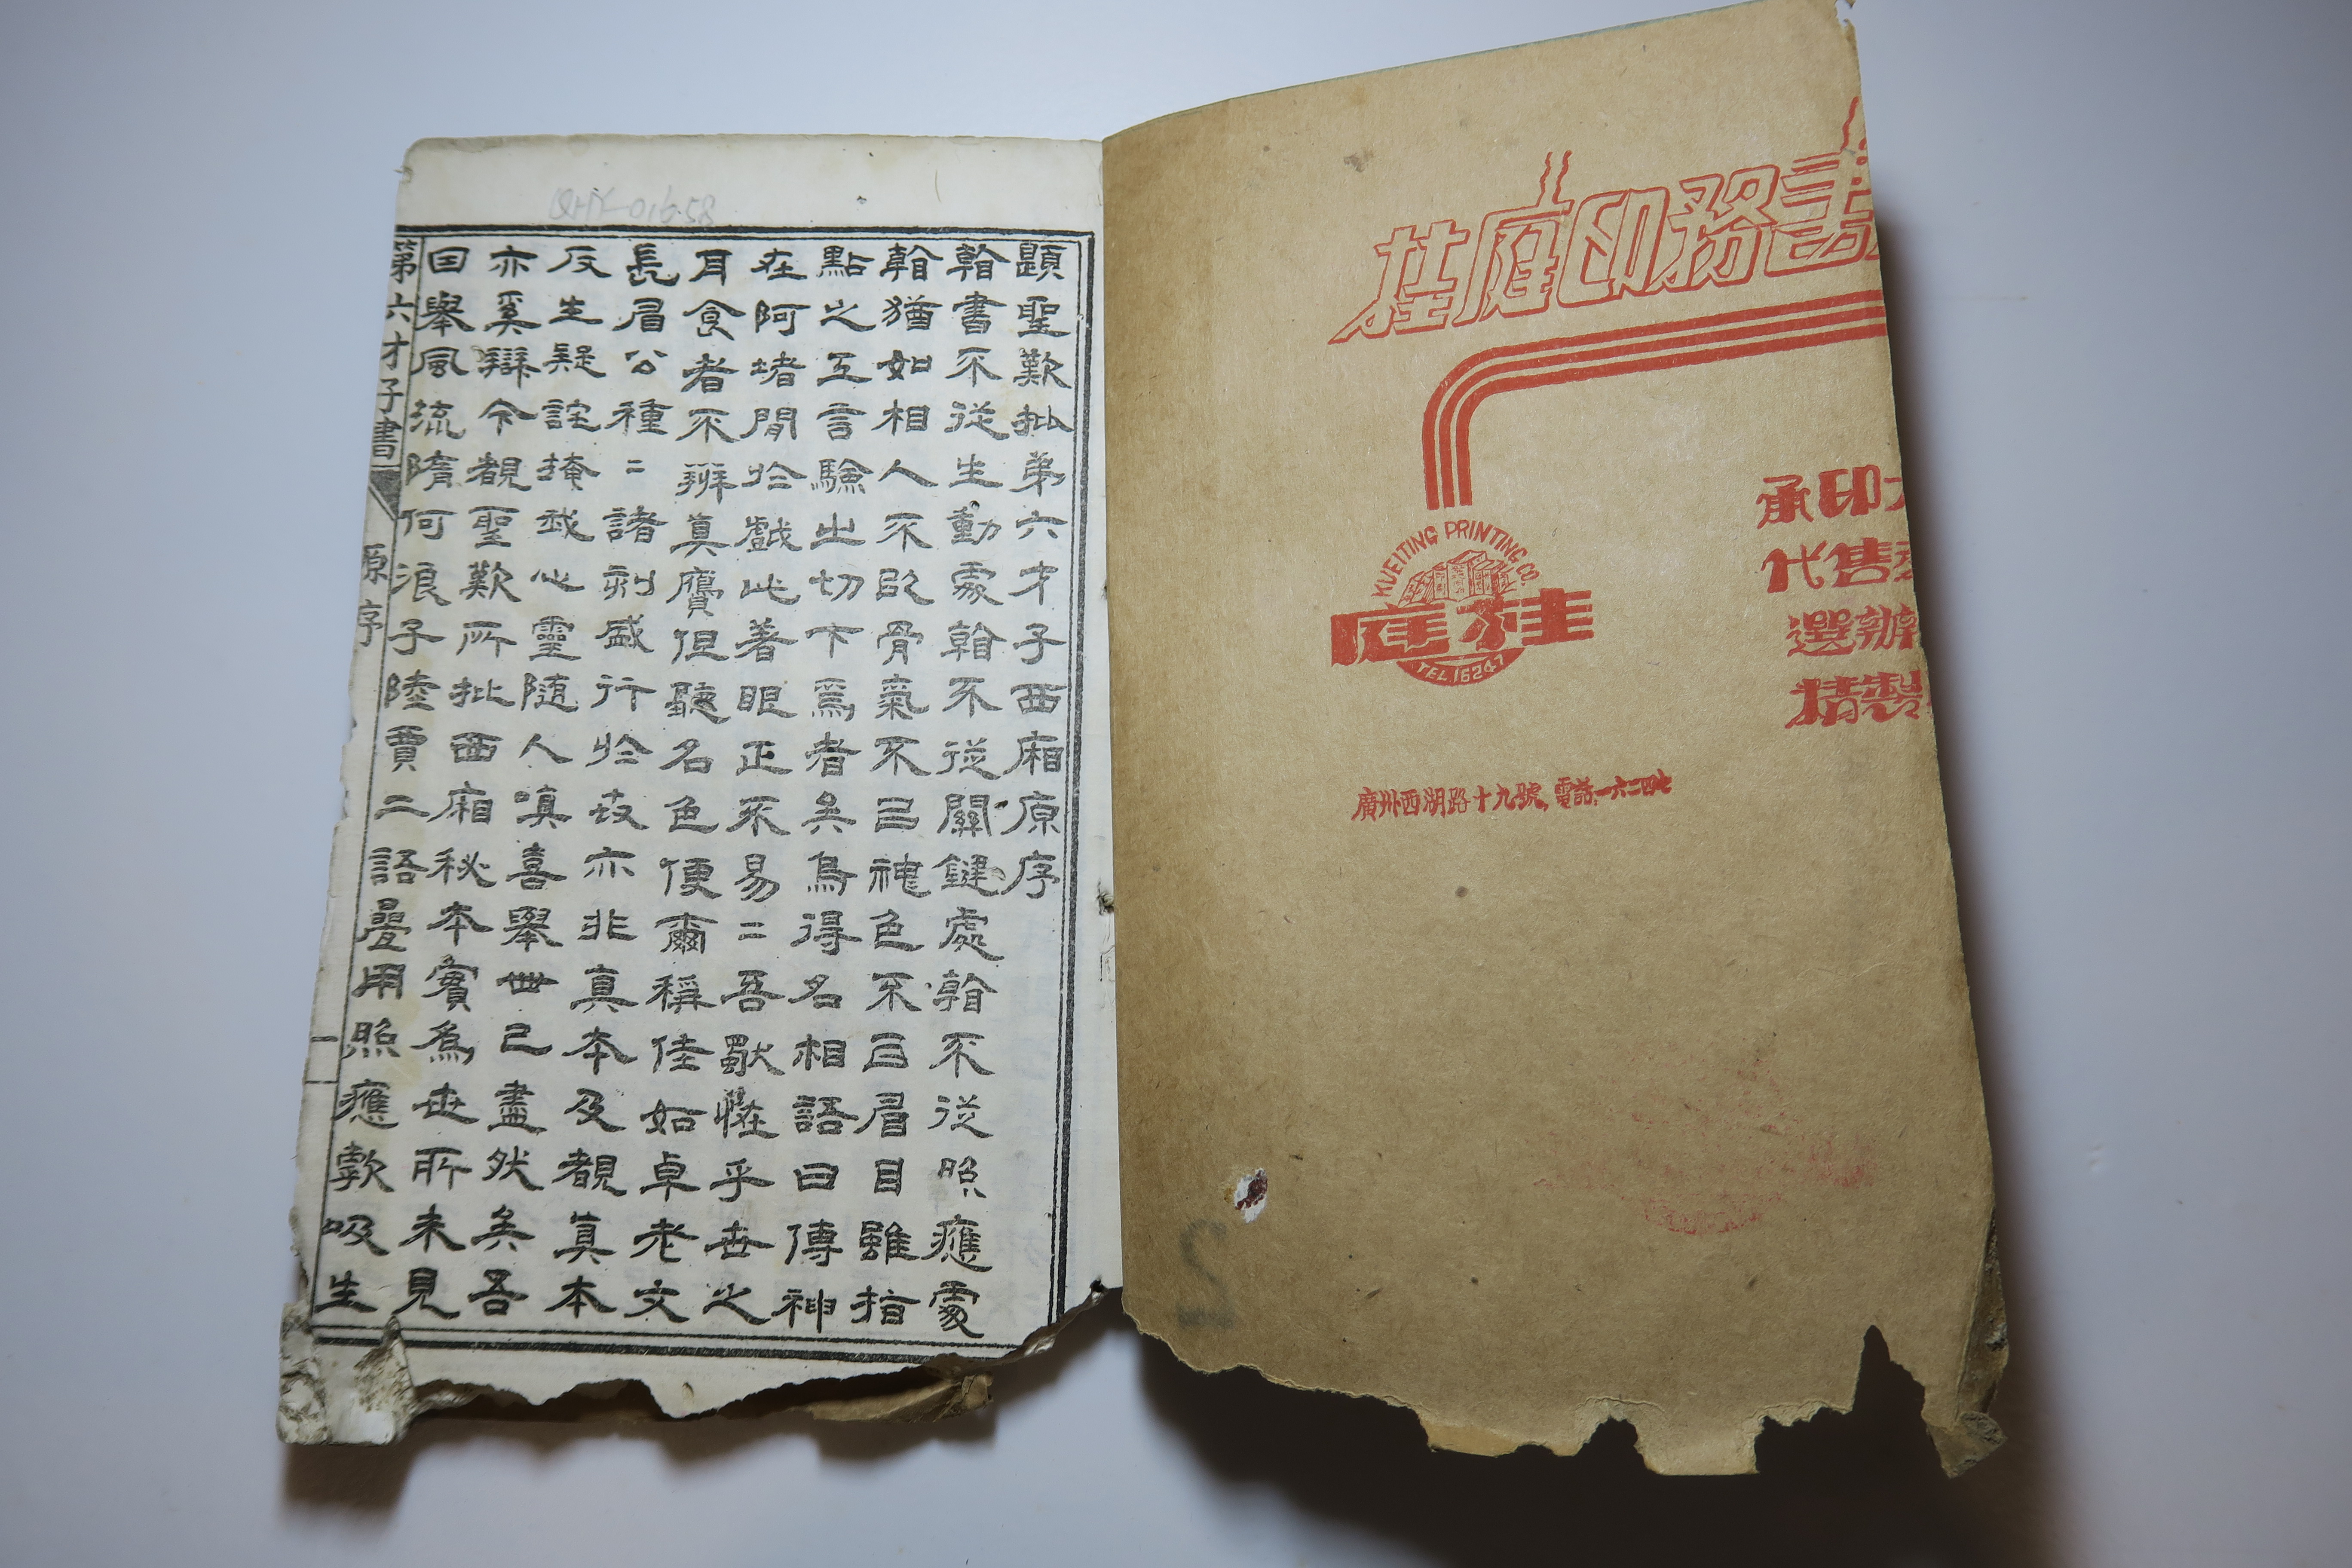 題聖歎批弟六才子西廂原序
翰書不從生動處翰不從關鍵處翰不從照應處
翰猶如相人不欧骨氣不曰神色不曰眉目雖指
點之工言驗出切下焉者矣烏得名相語曰傳神
在阿堵間於戲此著眼正不易二吾歇恠乎世之
耳食者不辨真贗但聽名色便爾稱佳如卓老文
長眉公種二諸刻盛行於世亦非真本及覩真本
反生疑詫掩我心靈隨人嗔喜舉世已盡然矣吾
亦奚辯今覩聖歎所批西廂秘本實為世所未見
曰舉風流隋何浪子陸賈二語疊用照應歎吸生
第六才子書
原序
一
QHX-01658
桂庭印務書
KUEITING PRINTING CO.
庭桂
TEL.16247
承印
代售
選辦
精製
廣州西湖路十九號,電話:一六二四七
2